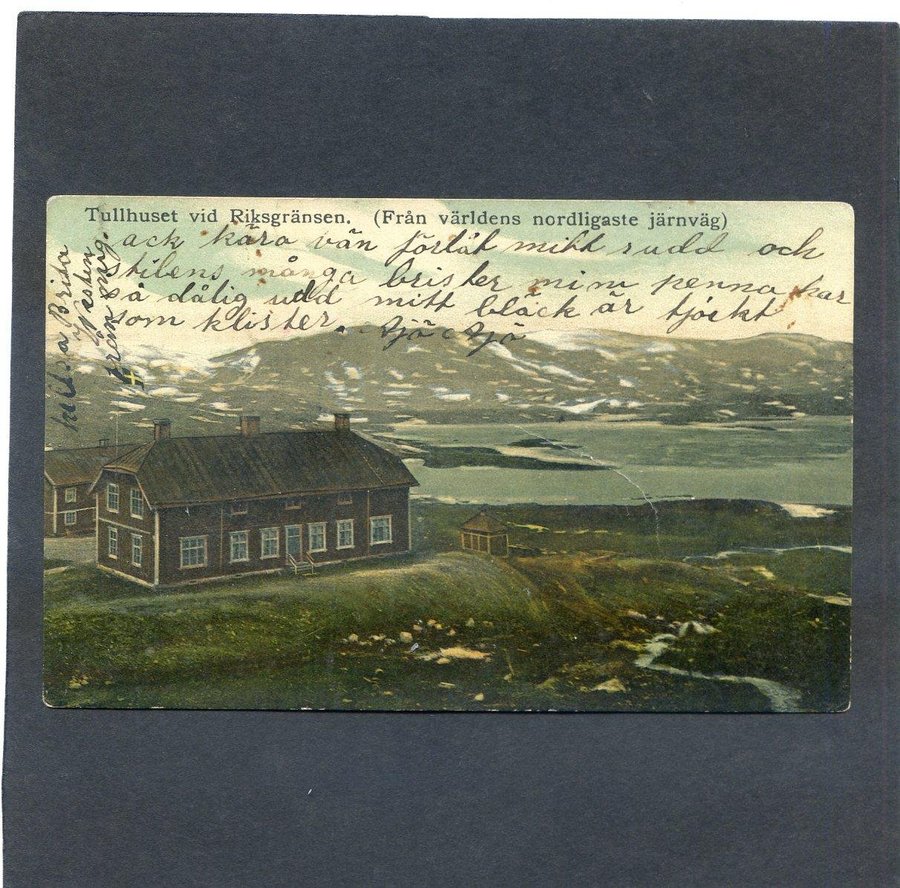 Tullhuset vid Riksgränsen. (Från världens nordligaste järnväg)
ack kära vän förlåt mitt sudd och
stilens många brister min penna har
så dålig udd mitt bläck är tjockt
som klister.
hälsa Brita
från mig.